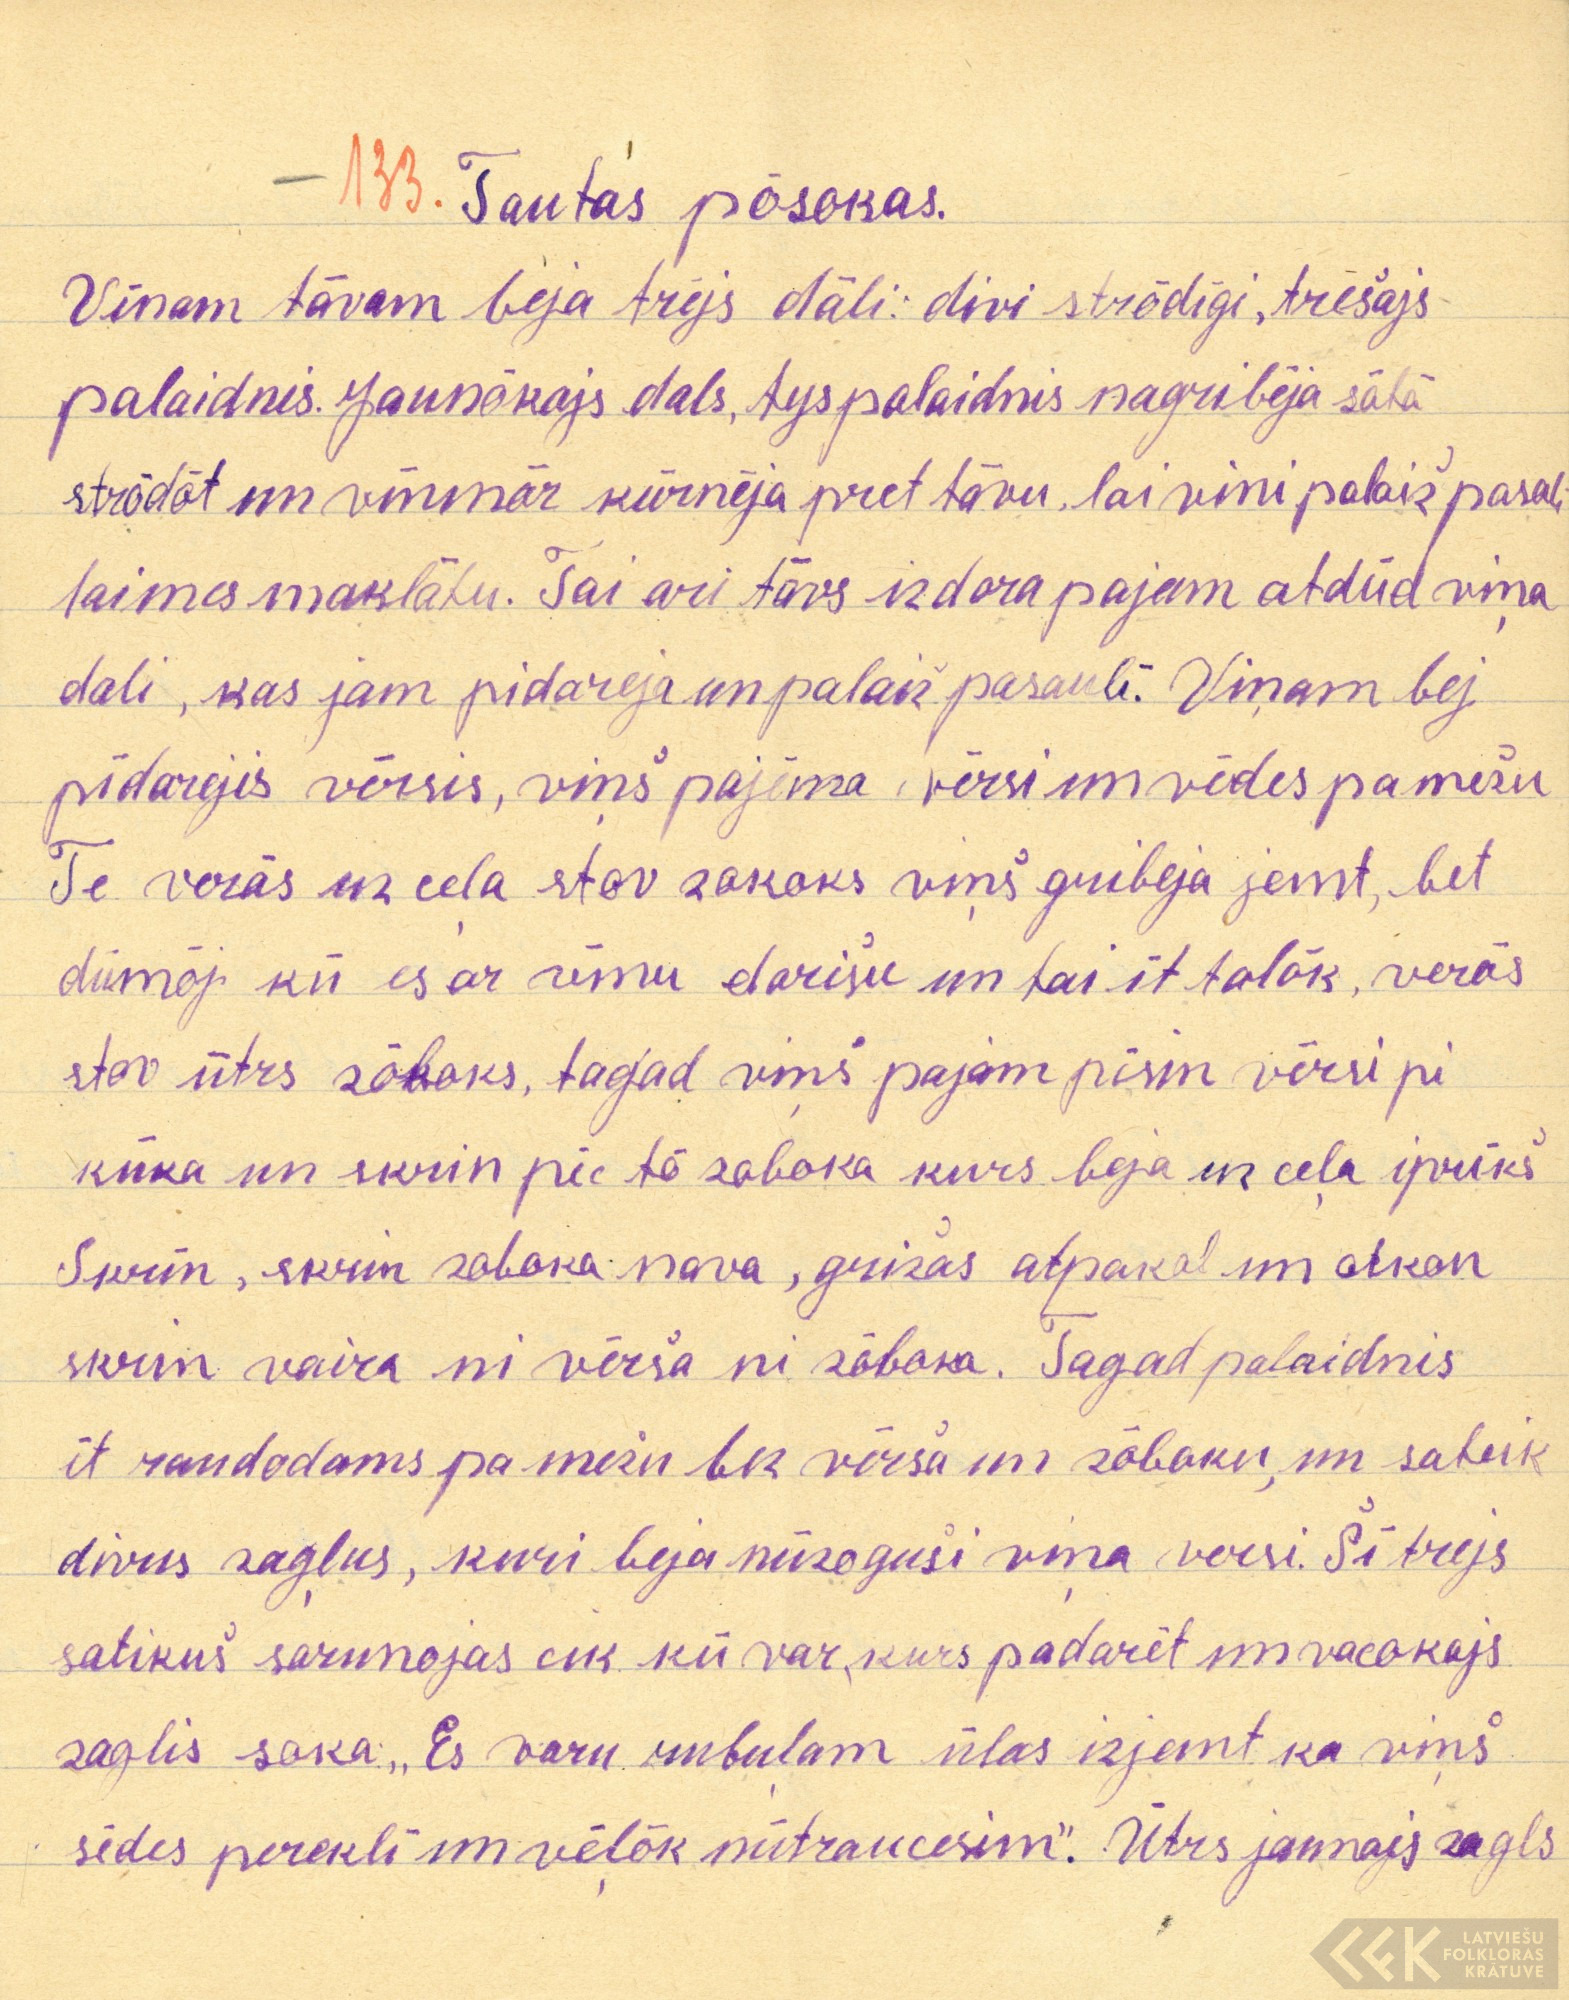 – 133. Tautas pōsokas.
Vīnam tāvam beja trejs dāli: divi strōdīgi, trešajs
palaidnis. Jaunōkajs dals, tys palaidnis nagribēja sātā
strōdōt un vīnmār kūrnēja pret tāvu, lai viņi palaiž pasaulī
laimes maklātu. Tai ari tāvs izdora pajam atdūd viņa
dali, kas jam pidareja un palaiž pasaulī. Viņam bej
pīdarejis vērsis, viņš pajēma vērsi un vēdes pa mežu
Te verās uz ceļa stov zokoks viņš gribeja jemt, bet
dūmōj kū es ar vīnu darišu un tai īt tolōk, verās
stov ūtrs zōboks, tagad viņš pajam pīsin vērsi pi
kūka un skrin pēc tō zoboka kurs beja uz ceļa iprīkš
Skrīn, skrin zoboka nava, grižās atpakaļ un otkon
skrin vaira ni vērša ni zōboka. Tagad palaidnis
īt raudodams pa mežu bez vērša un zōboku, un sateik
divus zagļus, kuri beja nūzoguši viņa versi. Šī trejs
satikuš sarunojas cik kū var kurs padarēt un vacokajs
zaglis soka: „Es varu rubuļam ūlas izjemt ka viņš
sēdes pereklī un vēļōk nūtraucesim". Ūtrs jaunajs zagls
LATVIEŠU
FOLKLORAS
KRĀTUVE